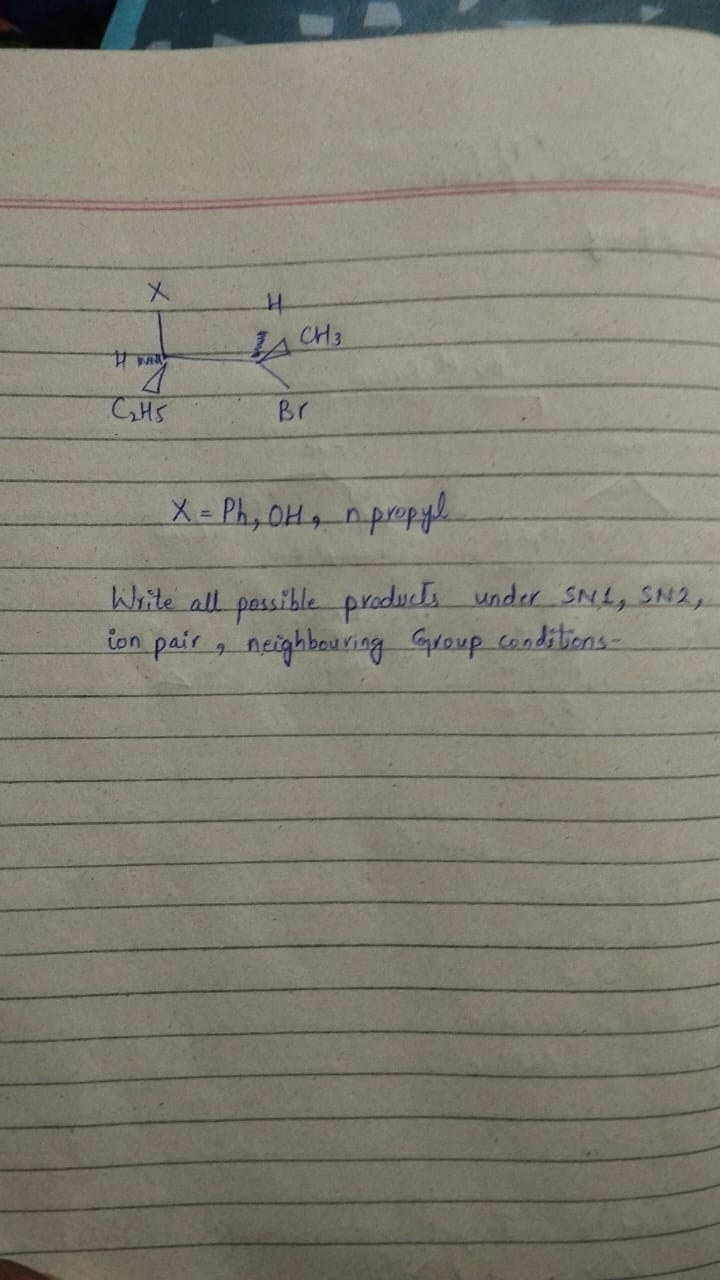 X
H
H
CH3
C2H5
Br
X = Ph, OH, n propyl
Write all possible products under SN1, SN2,
ion pair, neighbouring Group conditions-